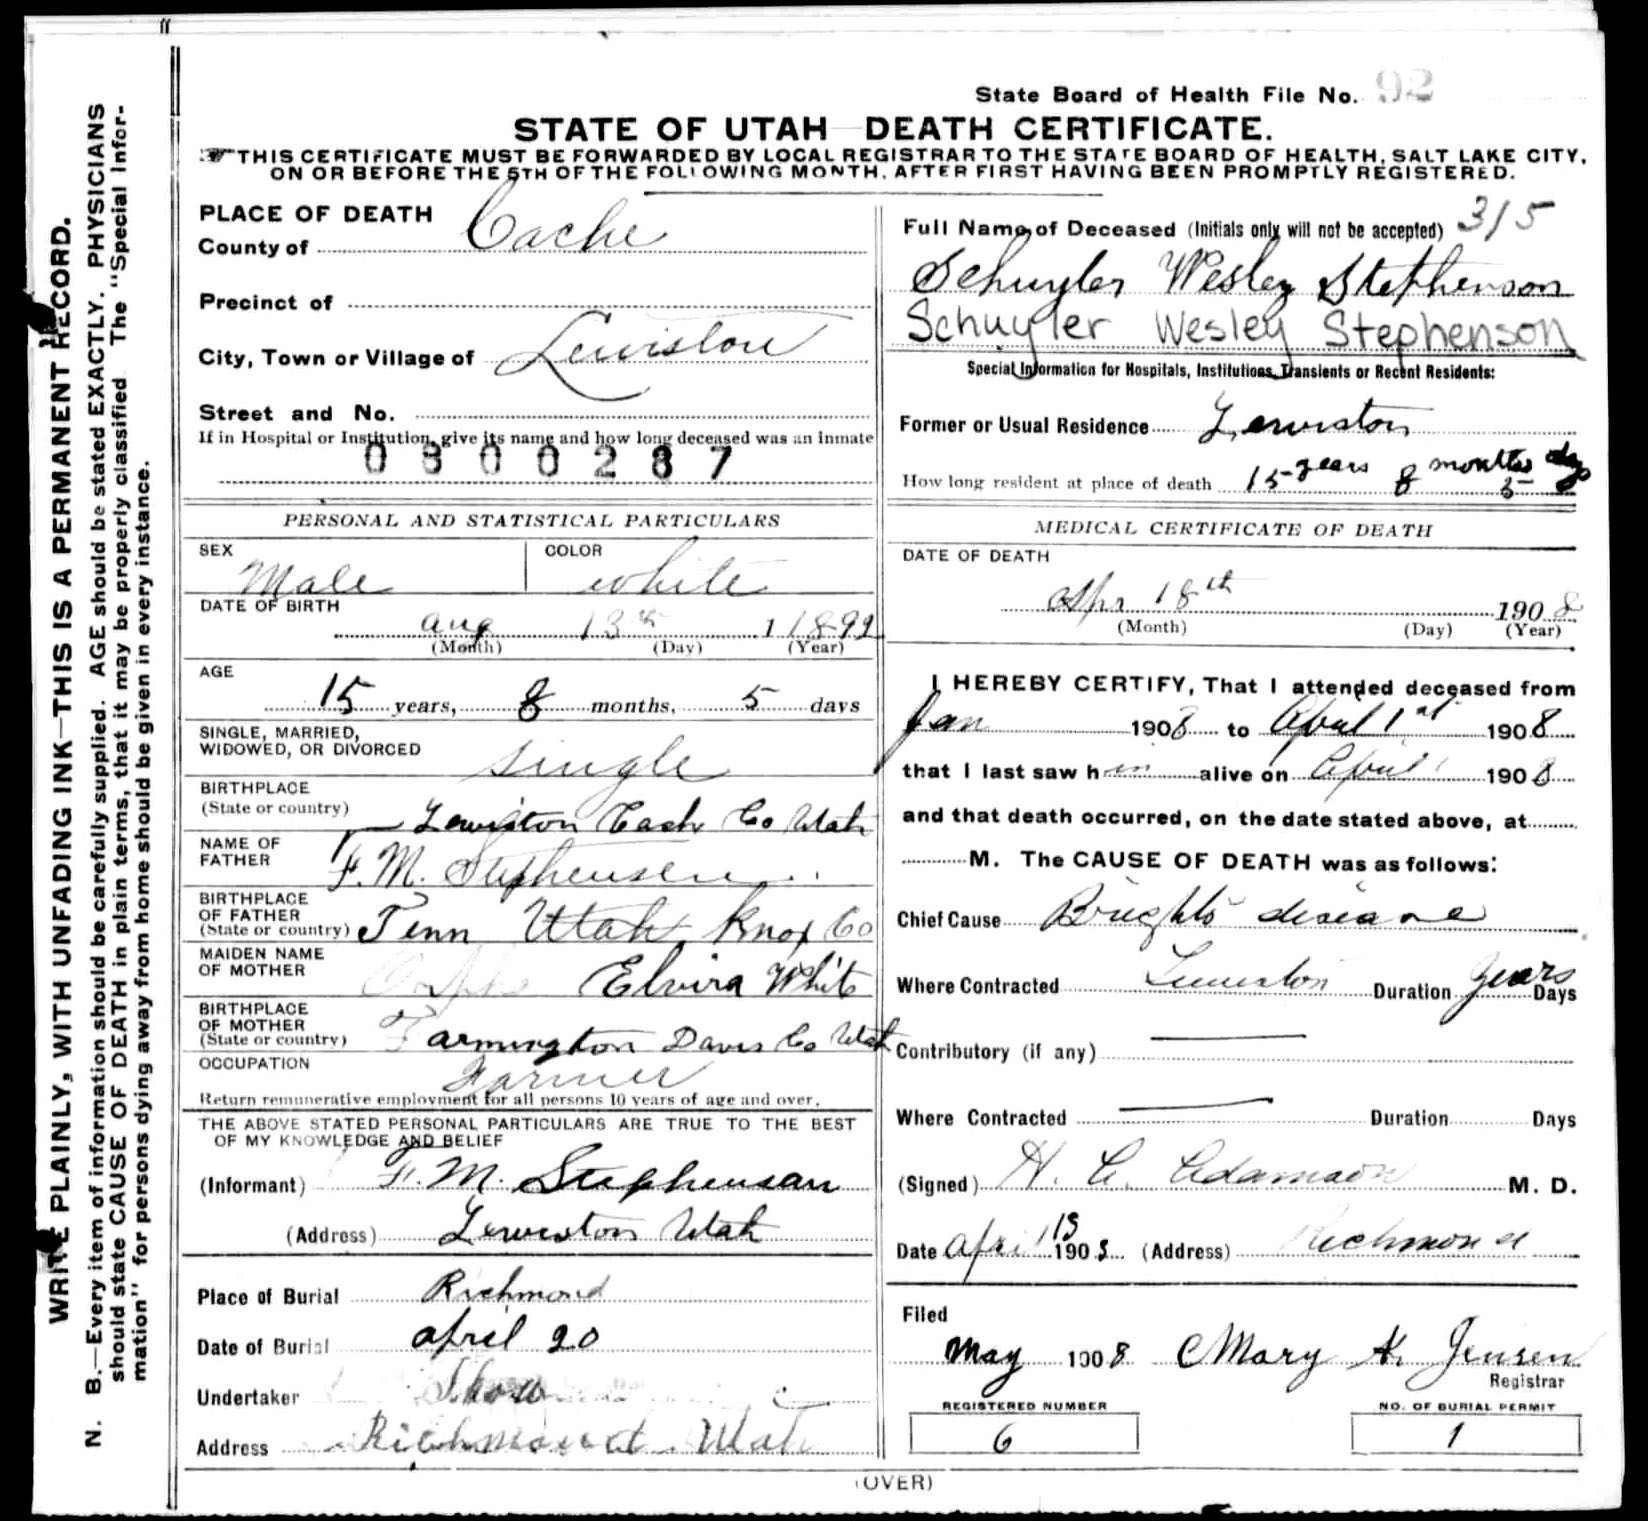 State Board of Health File No. 92
STATE OF UTAH—DEATH CERTIFICATE.
THIS CERTIFICATE MUST BE FORWARDED BY LOCAL REGISTRAR TO THE STATE BOARD OF HEALTH, SALT LAKE CITY,
ON OR BEFORE THE 5TH OF THE FOLLOWING MONTH, AFTER FIRST HAVING BEEN PROMPTLY REGISTERED.
WRITE PLAINLY, WITH UNFADING INK—THIS IS A PERMANENT RECORD.
N. B.—Every item of information should be carefully supplied. AGE should be stated EXACTLY. PHYSICIANS
should state CAUSE OF DEATH in plain terms, that it may be properly classified The "Special Infor-
mation" for persons dying away from home should be given in every instance.
PLACE OF DEATH
County of Cache
Precinct of
City, Town or Village of Lewiston
Street and No.
If in Hospital or Institution, give its name and how long deceased was an inmate
0300287
PERSONAL AND STATISTICAL PARTICULARS
SEX Male COLOR white
DATE OF BIRTH
aug 13th 1 1892
(Month) (Day) (Year)
AGE
15 years, 8 months, 5 days
SINGLE, MARRIED,
WIDOWED, OR DIVORCED single
BIRTHPLACE
(State or country) Lewiston Cach Co Utah
NAME OF
FATHER F. M. Stephensen
BIRTHPLACE
OF FATHER
(State or country) Tenn Utah Knox Co
MAIDEN NAME
OF MOTHER Elvira White
BIRTHPLACE
OF MOTHER
(State or country) Farmington Davis Co Utah
OCCUPATION Farmer
Return remunerative employment for all persons 10 years of age and over.
THE ABOVE STATED PERSONAL PARTICULARS ARE TRUE TO THE BEST
OF MY KNOWLEDGE AND BELIEF
(Informant) F. M. Stephensan
(Address) Lewiston Utah
Place of Burial Richmond
Date of Burial april 20
Undertaker
Address Richmond Utah
Full Name of Deceased (Initials only will not be accepted) 315
Schuyler Wesley Stephenson
Schuyler Wesley Stephenson
Special Information for Hospitals, Institutions, Transients or Recent Residents:
Former or Usual Residence Lewiston
How long resident at place of death 15 years 8 months 5 days
MEDICAL CERTIFICATE OF DEATH
DATE OF DEATH
Apr 18th 1908
(Month) (Day) (Year)
I HEREBY CERTIFY, That I attended deceased from
Jan 1908 to April 1st 1908
that I last saw him alive on April 1 1908
and that death occurred, on the date stated above, at
M. The CAUSE OF DEATH was as follows:
Chief Cause Brights disease
Where Contracted Lewiston Duration years Days
Contributory (if any)
Where Contracted Duration Days
(Signed) H. C. Adamson M. D.
Date April 18 1908 (Address) Richmond
Filed
May 1908 Mary H. Jensen
Registrar
REGISTERED NUMBER
6
NO. OF BURIAL PERMIT
1
(OVER)